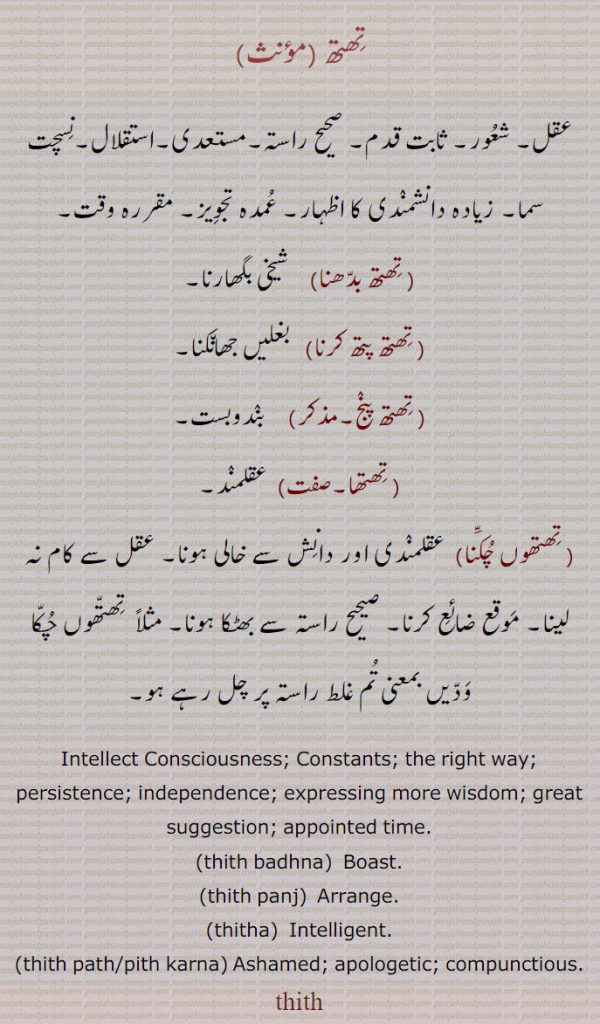 تِھتھ (مؤنث)
عقل۔ شعُور۔ ثابت قدم۔ صحیح راستہ۔مستعدی۔استقلال۔نِسچت
سما۔ زیادہ دانشمنْدی کا اظہار۔ عُمدہ تجوِیز۔ مقررہ وقت۔
(تِھتھ بدّھنا) شیخی بگھارنا۔
(تِھتھ پتھ کرنا) بغلیں جھانْکنا۔
(تِھتھ پنْج۔مذکر) بنْدوبست۔
(تِھتھا۔صفت) عقلمنْد۔
(تِھتھوں چُکنّا) عقلمنْدی اور دانِش سے خالی ہونا۔ عقل سے کام نہ
لینا۔ مَوقع ضائع کرنا۔ صحیح راستہ سے بھٹکا ہونا۔ مثلاً تِھتھّوں چُکّا
وَدّیں بمعنی تُم غلط راستہ پر چل رہے ہو۔
Intellect Consciousness; Constants; the right way;
persistence; independence; expressing more wisdom; great
suggestion; appointed time.
(thith badhna) Boast.
(thith panj) Arrange.
(thitha) Intelligent.
(thith path/pith karna) Ashamed; apologetic; compunctious.
thith